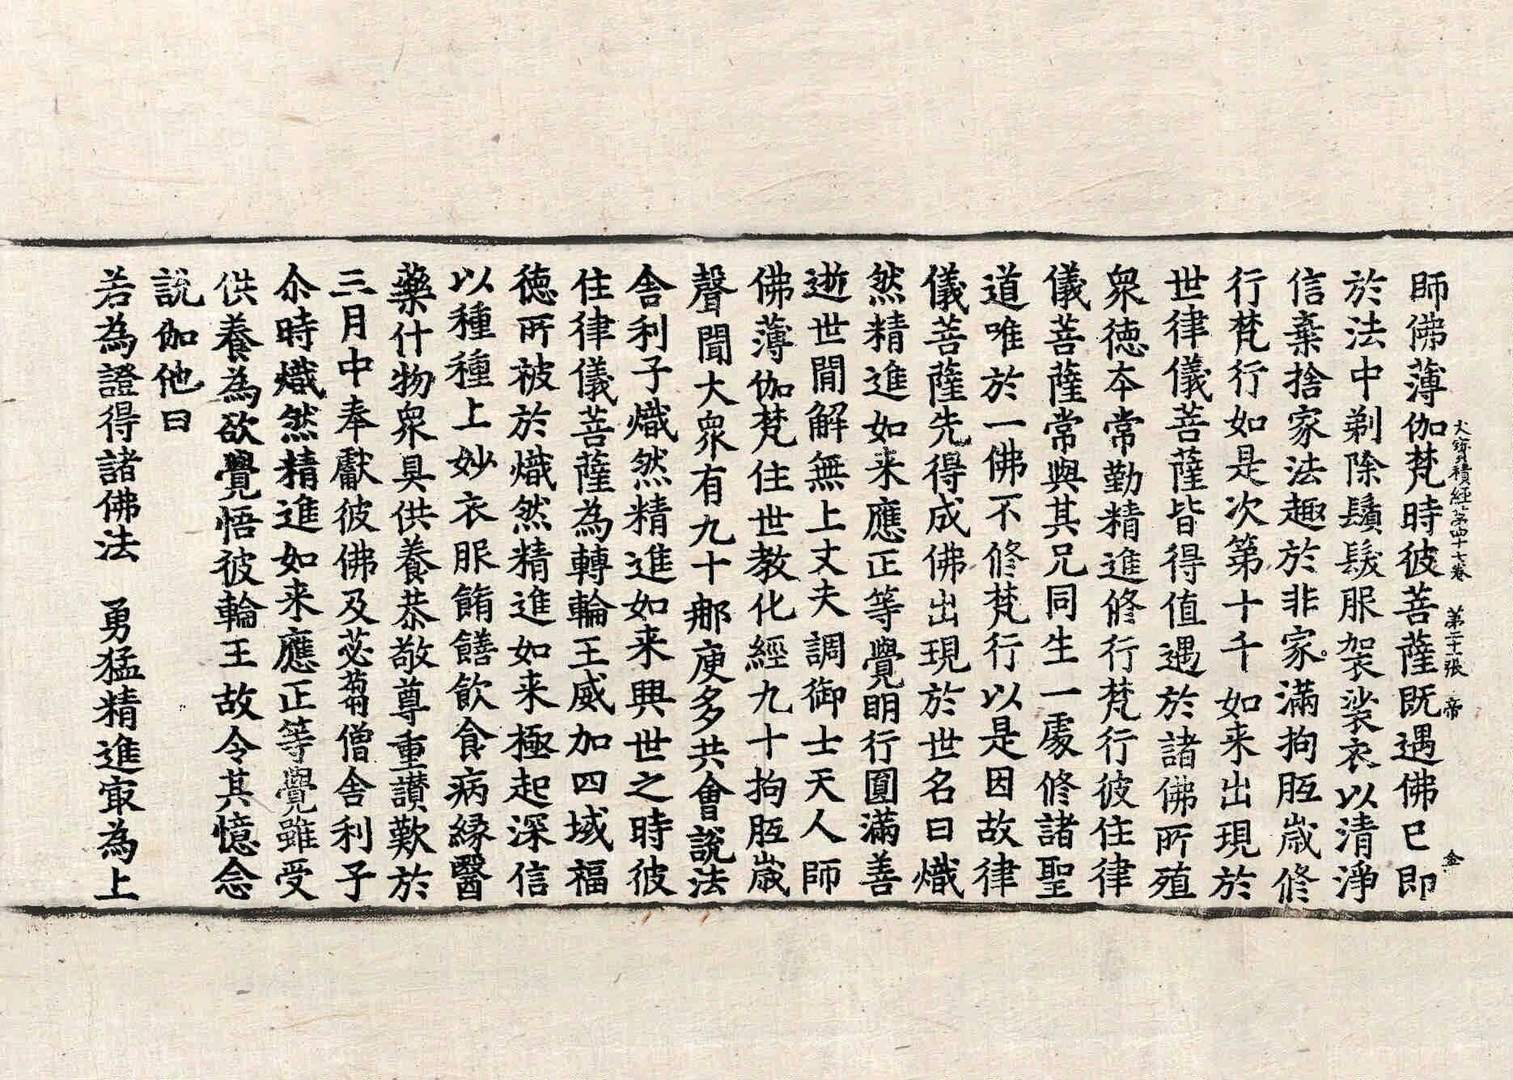 大寶積經第四十七卷 第二十張 帝 金
師佛薄伽梵時彼菩薩既遇佛已即
於法中剃除鬚髮服袈裟衣以清淨
信棄捨家法趣於非家滿拘胝歲修
行梵行如是次第十千如来出現於
世律儀菩薩皆得值遇於諸佛所殖
眾德夲常勤精進修行梵行彼住律
儀菩薩常與其兄同生一處修諸聖
道唯於一佛不修梵行以是因故律
儀菩薩先得成佛出現於世名曰熾
然精進如来應正等覺明行圓滿善
逝世間解無上丈夫調御士天人師
佛薄伽梵住世教化經九十拘胝歲
聲聞大眾有九十那庾多共會說法
舍利子熾然精進如来興世之時彼
住律儀菩薩為轉輪王威加四域福
德所被於熾然精進如来極起深信
以種種上妙衣服餚饍飲食病緣醫
藥什物眾具供養恭敬尊重讃歎於
三月中奉獻彼佛及苾蒭僧舍利子
尒時熾然精進如来應正等覺雖受
供養為欲覺悟彼輪王故令其憶念
說伽他曰
若為證得諸佛法　勇猛精進㝡為上